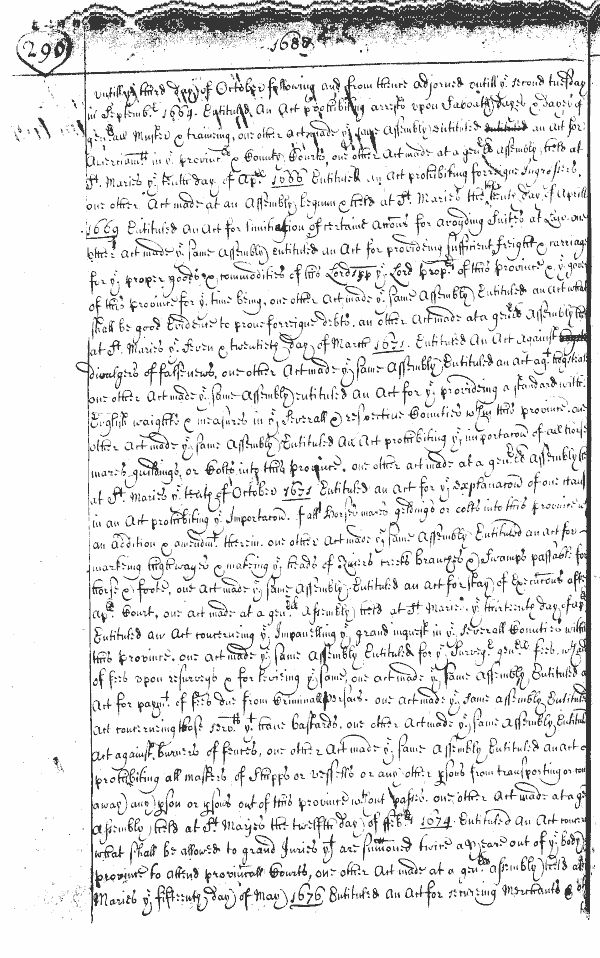 290
1688
untill ye third day of October following and from thence adjorned untill ye second tuesday
in Septembr 1664. Entituled An Act prohibiting arrests upon Sabouth dayes & dayes of
genrall Muster & training, one other Act made ye same Assembly Entituled an Act for
in ye province & County Courts, one other Act made at a genll Assembly held at
St. Maries ye tenth day of Aprll 1666 Entituled an Act prohibiting forreigne Ingrossers,
one other Act made at an Assembly begunn & held at St Maries the day of Aprill
1669 Entituled An Act for limitacon of certaine Accons for avoyding Suites at Law. one
other Act made ye same Assembly entituled an Act for provideing sufficient freight & carriage
for ye proper goods & commodities of his Lordspp ye Lord propry of this province & ye
of this province for ye time being, one other Act made ye same Assembly Entituled an Act what
shall be good Evidence to prove forreigne debts. an other Act made at a genrll Assembly
at St. Maries ye Seven & twentieth day of March 1671. Entituled An Act Against
divulgers of false news, one other Act made ye same Assembly Entituled an Act agt
one other Act made ye same Assembly entituled an Act for ye provideing a standard with
English waights & measures in ye severall & respective Counties wthin this province. one
other Act made ye same Assembly Entituled An Act prohibiting ye importacon of all horses
mares guildings, or Colts into this province. one other act made at a genrll Assembly
at St Maries ye tenth of October 1671 Entituled an Act for ye explanacon of one
in an Act prohibiting ye Importacon of all horses mares geldings or colts into this province
an Addition & amendmt therein. one other Act made ye same Assembly Entituled an Act for
marking highwayes & making ye heads of Rivers creeks branches & Swamps passable for
horse & foote, one Act made ye same Assembly Entituled an Act for stay of Execucons after
Aprll Court, one Act made at a genrll Assembly held at St Maries ye thirteenth day of
Entituled an Act concerning ye Impannelling ye grand inquest in ye severall Counties within
this province. one Act made ye same Assembly Entituled for ye Survey genrll fees.
of fees upon resurveys & for leviing ye same, one Act made ye same Assembly Entituled a
Act for paymt of fees due from Criminall persons. one Act made ye same assembly Entituled
Act concerning those servts yt have bastards. one other Act made ye same Assembly Entituled
Act against burners of fences, one other Act made ye same Assembly Entituled an Act
prohibiting all masters of Shipps or vessells or any other psons from transporting or
away any pson or psons out of this province wthout passes. one other Act made at a ge
Assembly held at St Maries the twelfth day of Febr 1674. Entituled An Act
what shall be allowed to grand Juries yt are sumoned twice a yeare out of ye body
province to attend provinciall Courts, one other Act made at a genrll Assembly held at
Maries ye fifteenth day of May 1676 Entituled An Act for secureing Merchants &